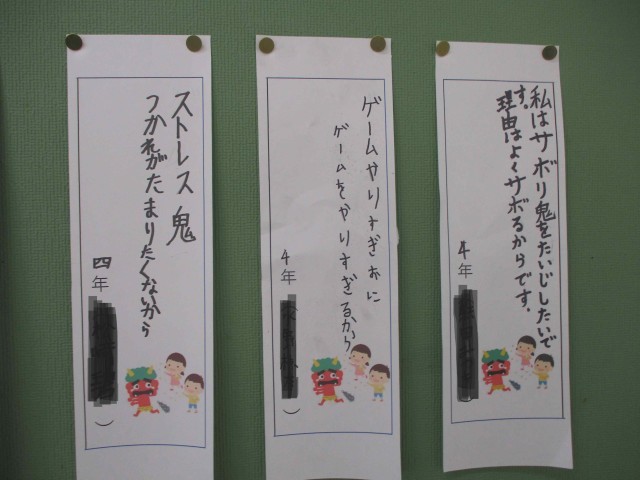 私はサボリ鬼をたいじしたいで
す。
理由はよくサボるからです。
4年
ゲームやりすぎおに
ゲームをやりすぎるから
4年
ストレス鬼
つかれがたまりたくないから
四年